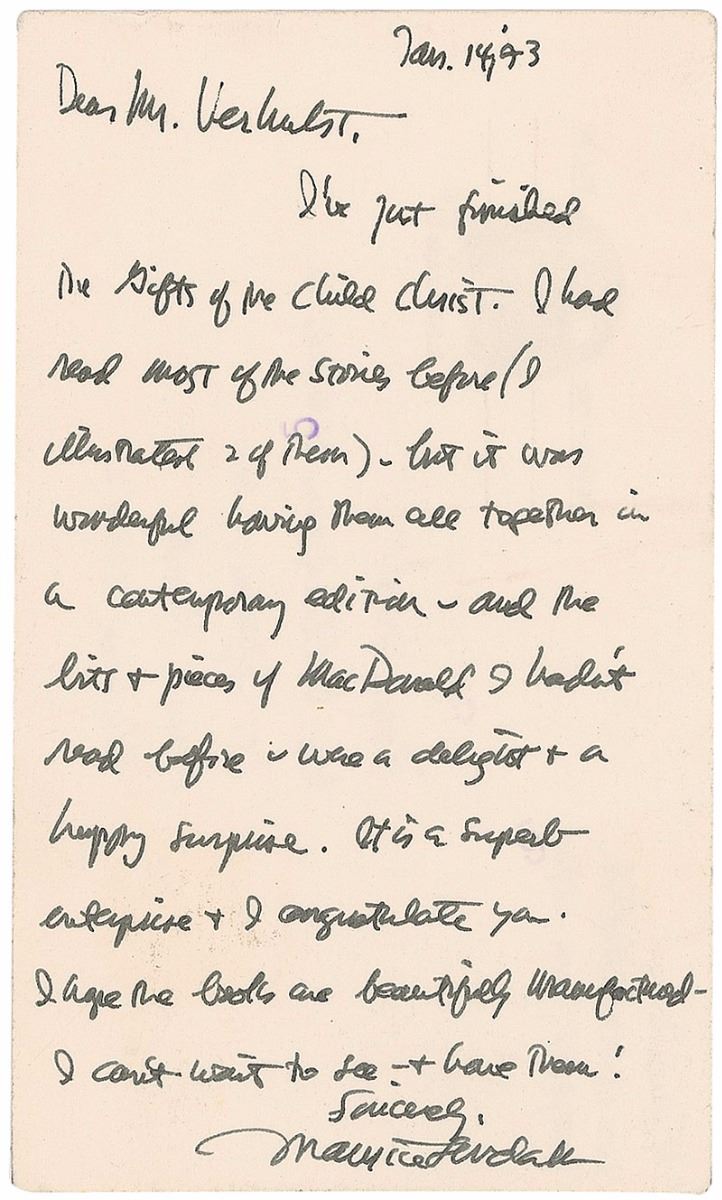 Jan. 14, '93
Dear Mr. Verhulst,
I've just finished
the Gifts of the Child Christ. I had
read most of the stories before (I
illustrated 2 of them) - but it was
wonderful having them all together in
a contemporary edition - and the
bits + pieces of MacDonald I hadn't
read before - were a delight + a
happy surprise. It is a superb
enterprise + I congratulate you.
I hope the books are beautifully manufactured -
I can't wait to see - + have them!
Sincerely,
Maurice Sendak